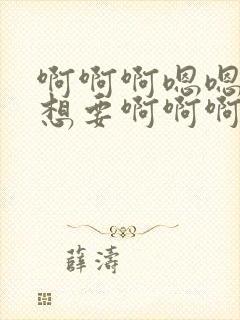 啊啊啊嗯嗯
想要啊啊啊
薛涛